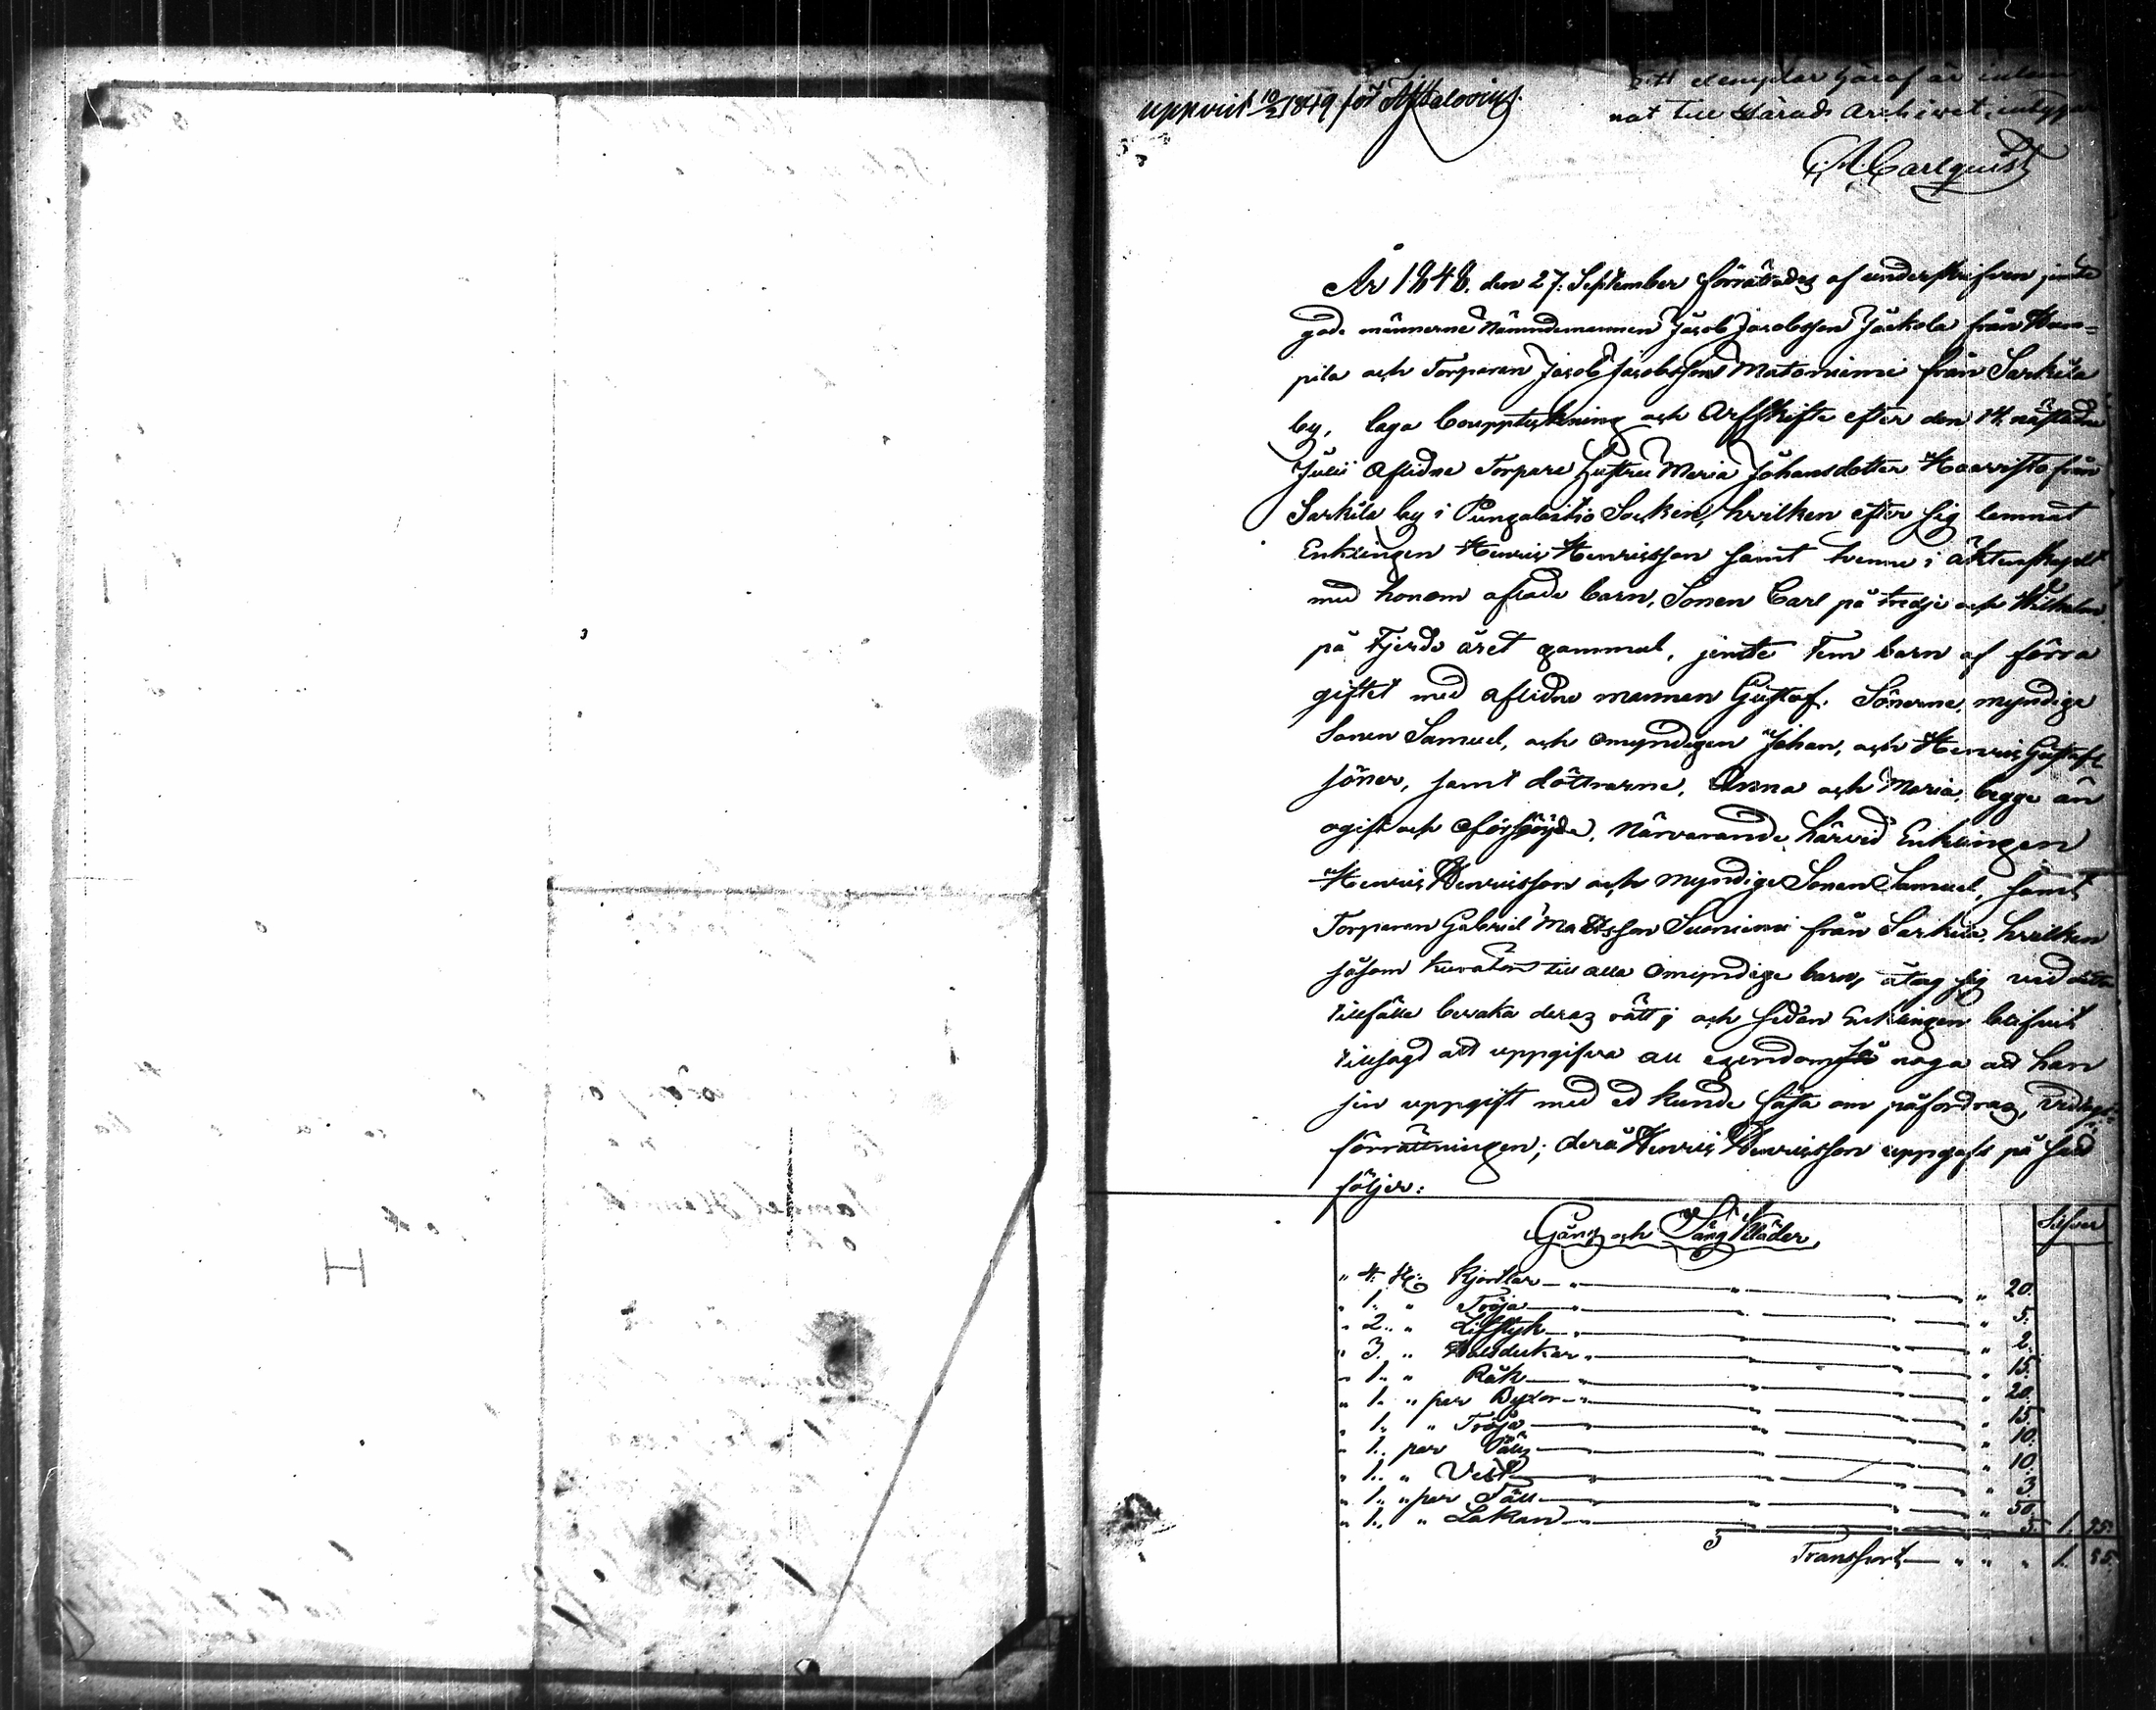 uppvist 10/2 1849 för
Ett exemplar häraf är inlem-
nat till Härads Archivet, intygar
Carlquist
År 1848. den 27. September förrättades af underskrifven jemte
gode männerne Nämndemannen Jacob Jacobsson Jaakola från Kam-
pila och Torparen Jacob Jacobsson Mataniemi från Sarkila
by, laga bouppteckning och Arfskifte efter den 14. nästledne
Julii Aflidne Torpare Hustru Maria Johansdotter Haavisto från
Sarkila by i Pungalaitio Socken, hvilken efter sig lemnat
Enklingen Henric Henricsson samt tvenne i äktenskapet
med honom aflade barn, Sonen Carl på tredje och Wilhelm
på Fjerde året gammal, jemte Fem barn af förra
giftet med aflidne mannen Gustaf. Sönerne, myndige
Sonen Samuel, och omyndigen Johan, och Henric Gustafs
söner, samt döttrarne, Anna och Maria, begge än
ogift och oförsörjde. Närvarande härvid Enklingen
Henric Henricsson och myndige Sonen Samuel, samt
Torparen Gabriel Mattsson Suoniemi från Sarkila, hvilken
såsom kurator till alla omyndige barn, åtog sig vid detta
tillfälle bevaka deras rätt; och sedan Enklingen blifvit
tillsagd att uppgifva all egendom så noga att han
sin uppgift med ed kunde fästa om påfordras,
förrättningen; derå Henric Henricsson uppgaf på sätt
följer:
Gång och Säng Kläder, Silfver
" 4. St: Kjortlar — " 20.
" 1. " Tröja — " 5.
" 2. " Lifstyk — " 2.
" 3. " Halsdukar — " 15.
" 1. " Råk — " 20.
" 1. " par Byxor — " 15.
" 1. " Tröja — " 10.
" 1. par — " 10.
" 1. " Vest — " 3.
" 1. " par Fäll — " 50.
" 1. " Lakan — " 5. 1. 55.
Transport — " " " 1. 55.